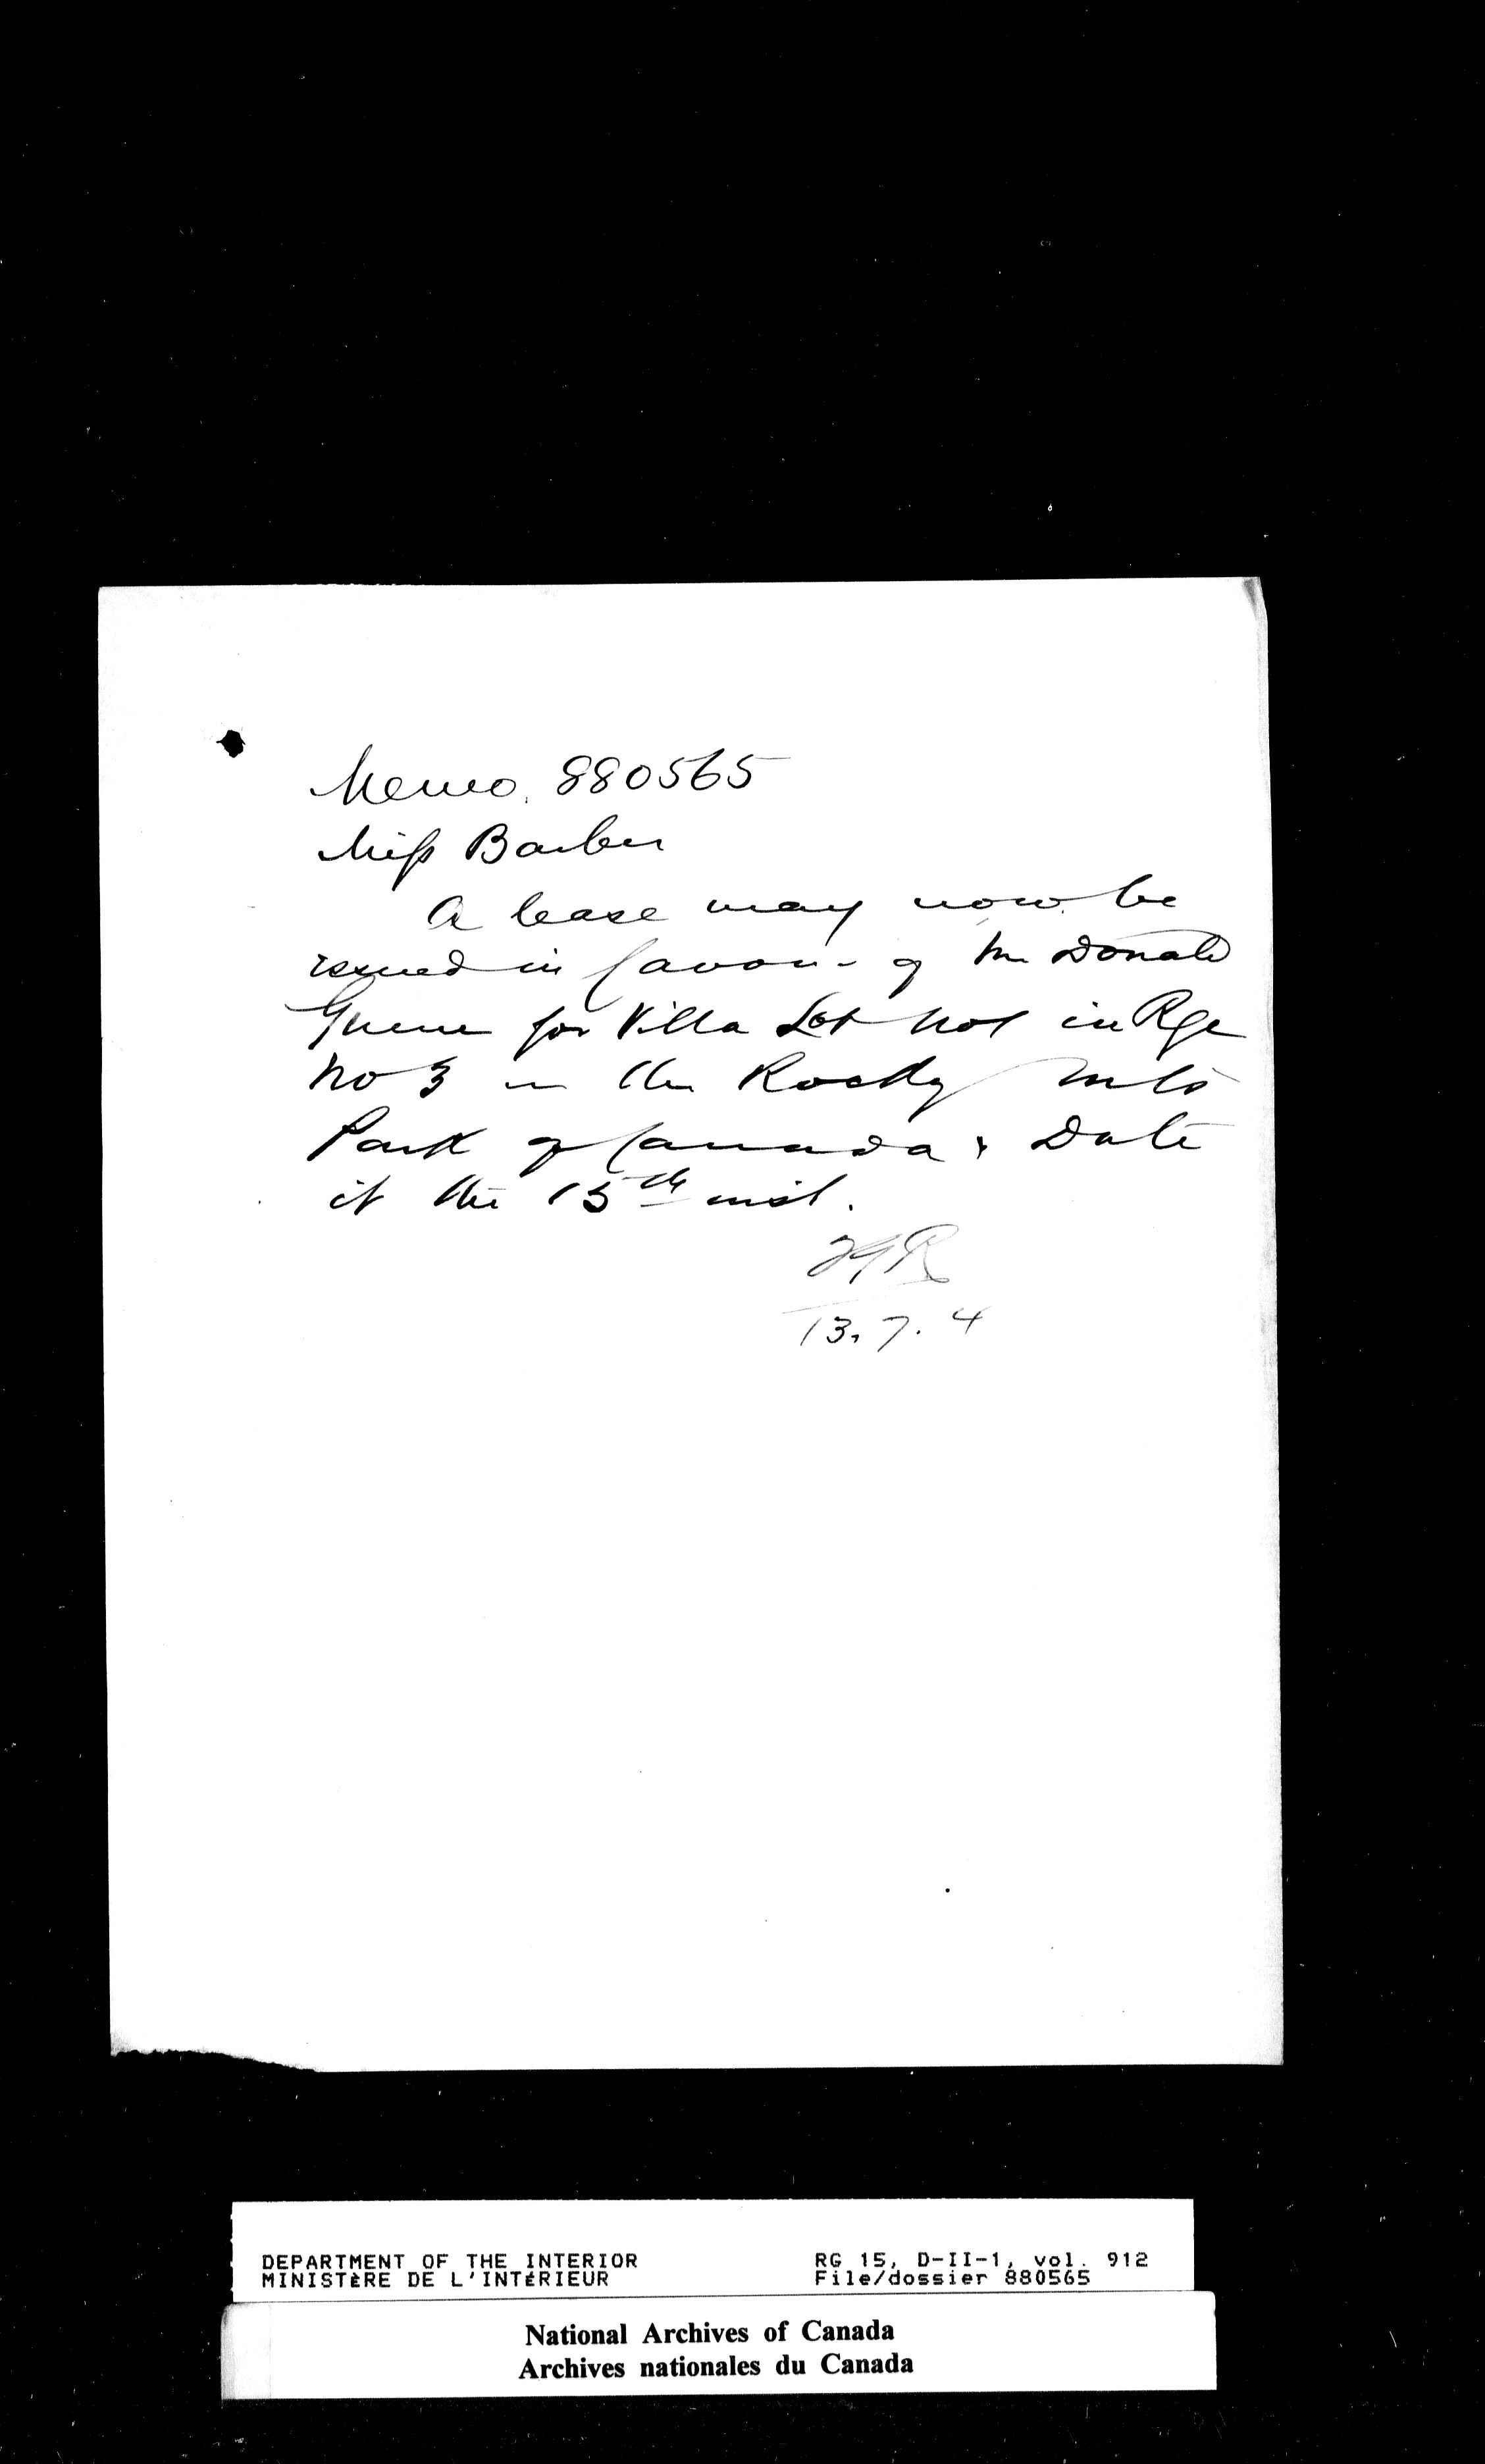 Memo. 880565
Miss Barber
A lease may now be
issued in favour of Mr Donald
Greene for Villa Lot No 1 in Rge
No 3 in the Rocky Mts
Park of Canada & Date
it the 15th inst.
13.7.4
DEPARTMENT OF THE INTERIOR
MINISTÈRE DE L'INTÉRIEUR
RG 15, D-II-1, vol. 912
File/dossier 880565
National Archives of Canada
Archives nationales du Canada